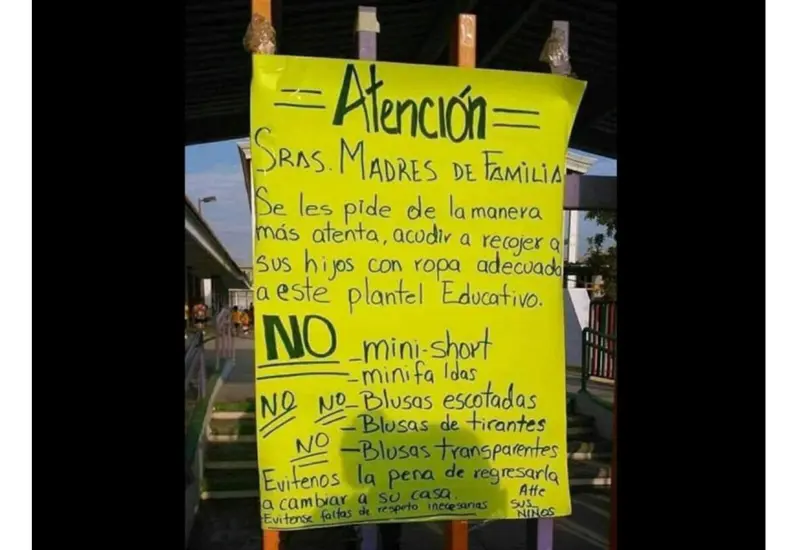 = Atención =
SRAS. MADRES DE FAMILIA
Se les pide de la manera
más atenta, acudir a recojer a
sus hijos con ropa adecuada
a este plantel Educativo.
NO - mini-short
- minifaldas
NO NO - Blusas escotadas
- Blusas de tirantes
NO - Blusas transparentes
Evitenos la pena de regresarla
a cambiar a su casa.
Evitense faltas de respeto inecesarias
Atte
SUS
NIÑOS